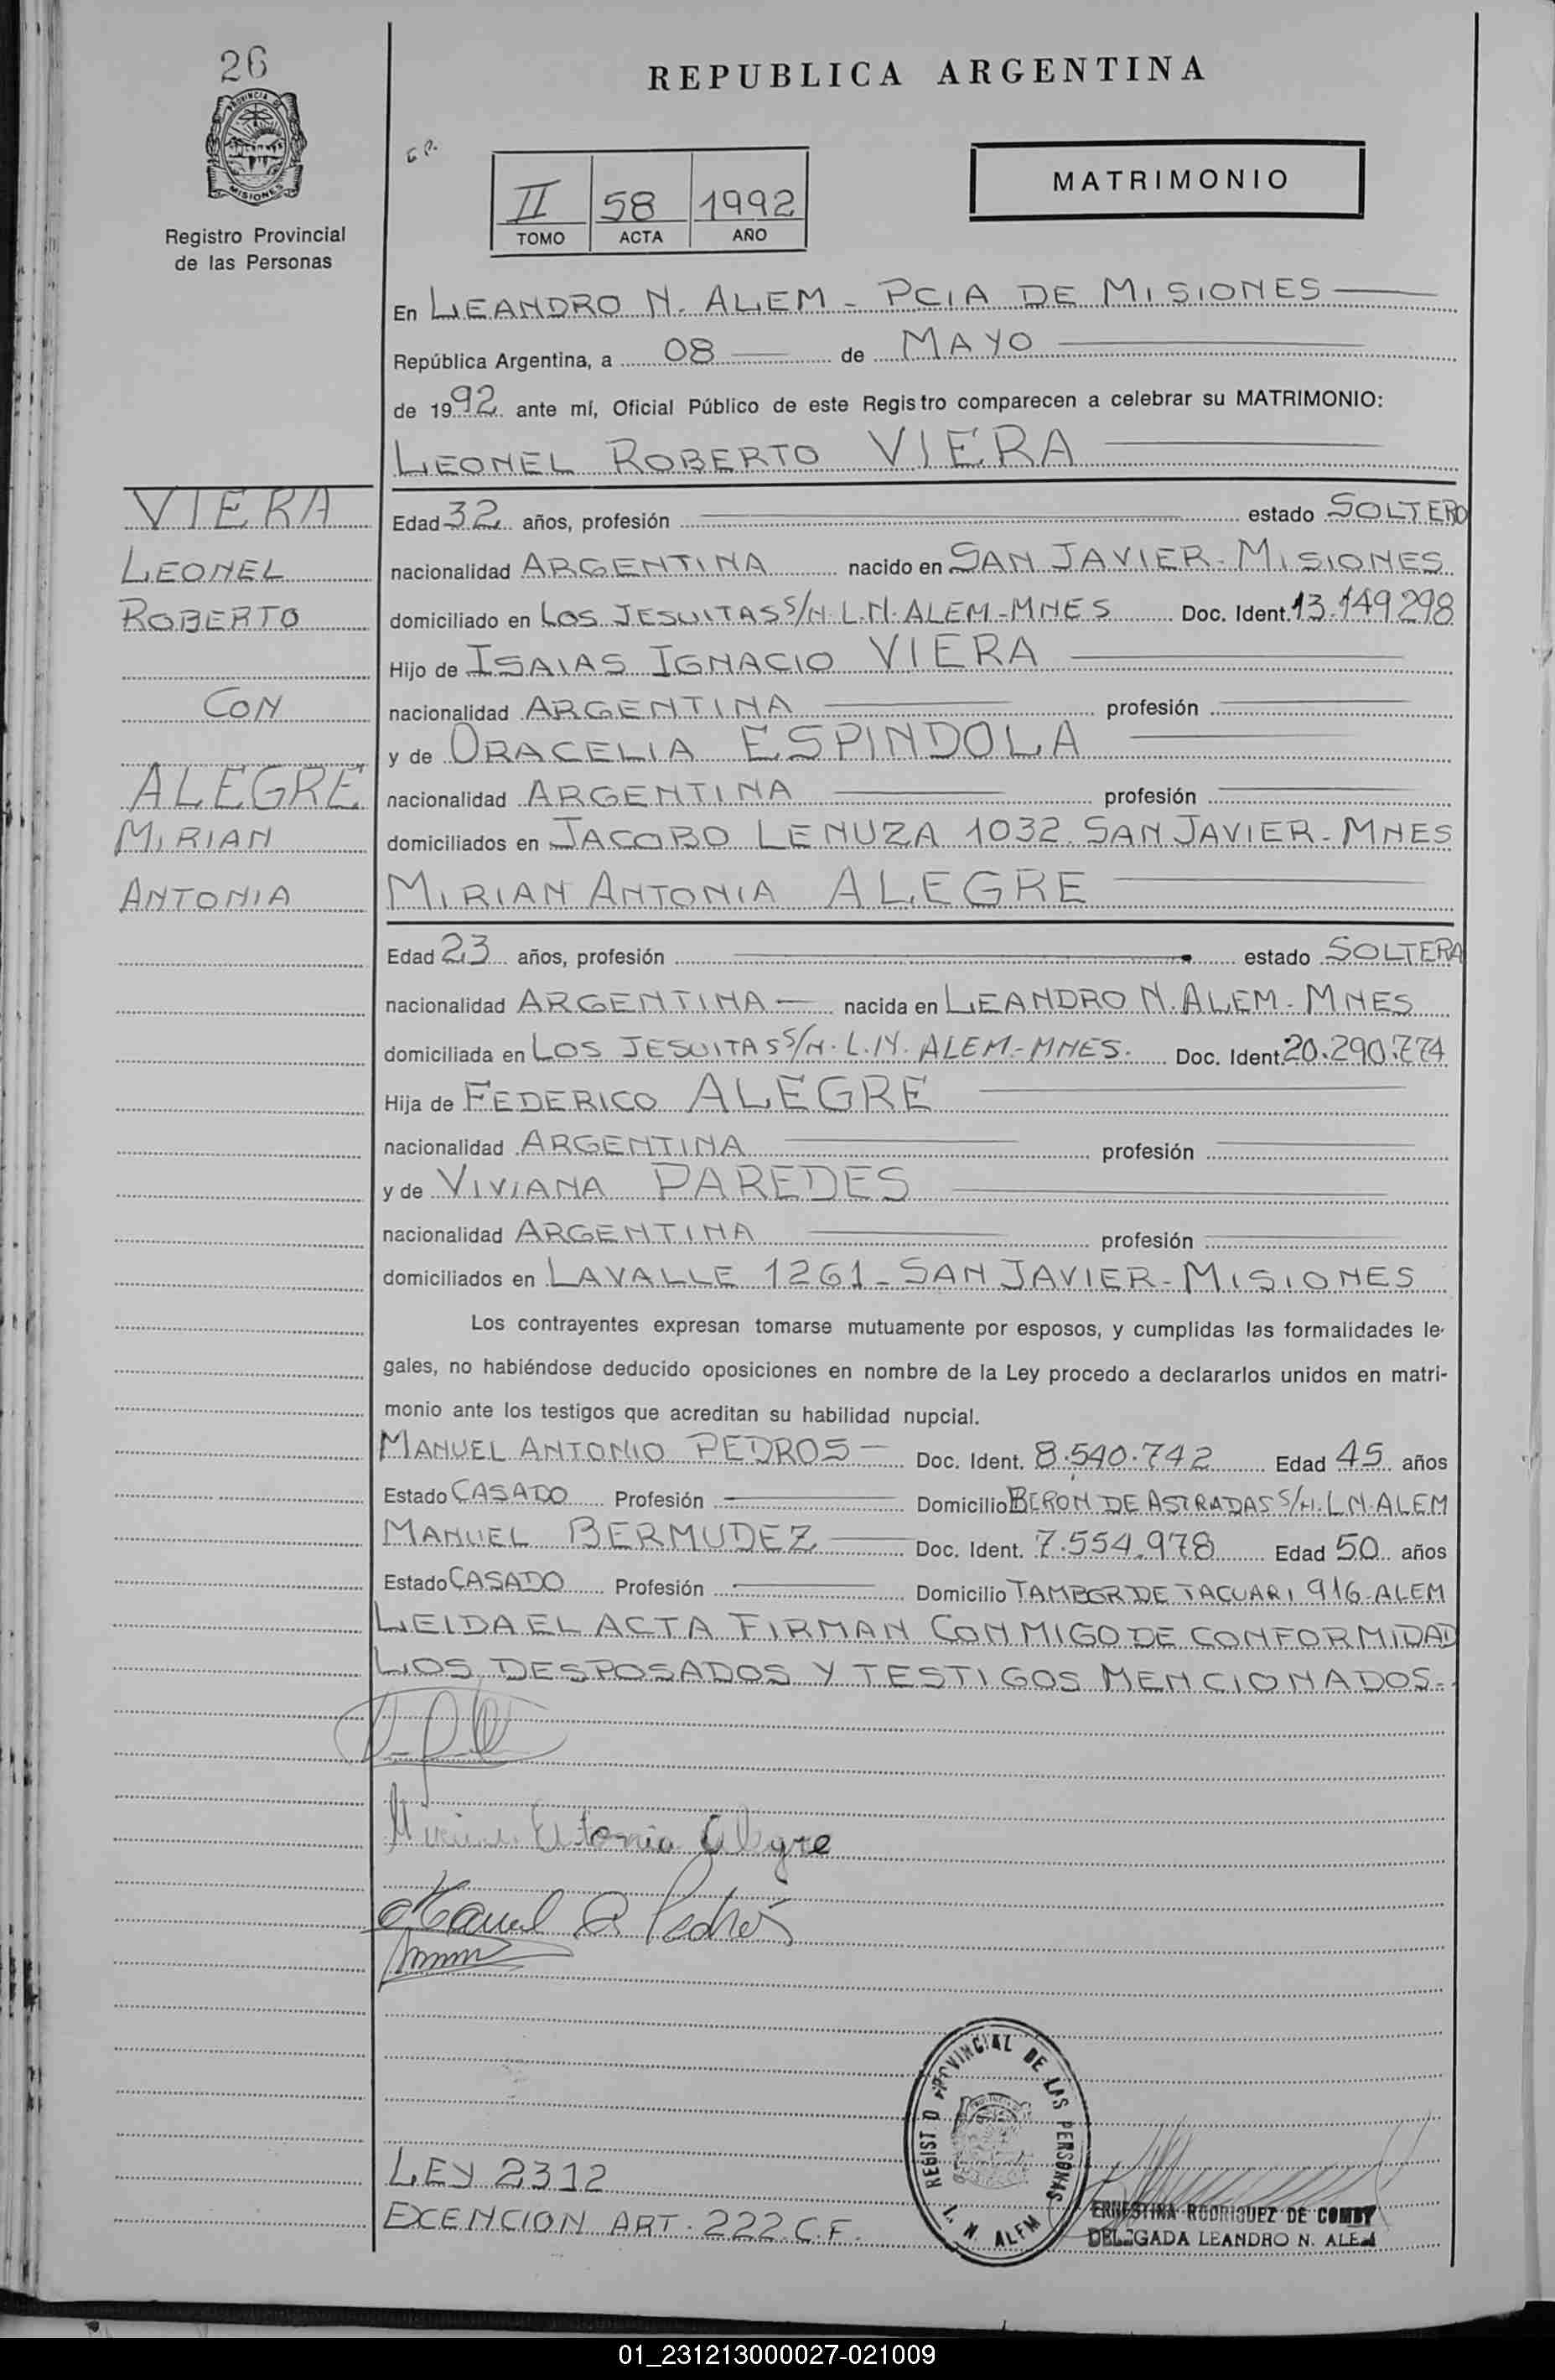 26
PROVINCIA DE
MISIONES
Registro Provincial
de las Personas
REPUBLICA ARGENTINA
II 58 1992
TOMO ACTA AÑO
MATRIMONIO
En LEANDRO N. ALEM - PCIA DE MISIONES
República Argentina, a 08 de MAYO
de 1992 ante mí, Oficial Público de este Registro comparecen a celebrar su MATRIMONIO:
LEONEL ROBERTO VIERA
VIERA
Edad 32 años, profesión estado SOLTERO
LEONEL
nacionalidad ARGENTINA nacido en SAN JAVIER - MISIONES
ROBERTO
domiciliado en LOS JESUITAS S/N. L.N. ALEM - MNES Doc. Ident. 13.149.298
Hijo de ISAIAS IGNACIO VIERA
CON
nacionalidad ARGENTINA profesión
y de ORACELIA ESPINDOLA
ALEGRE
nacionalidad ARGENTINA profesión
MIRIAN
domiciliados en JACOBO LENUZA 1032. SAN JAVIER - MNES
ANTONIA
MIRIAN ANTONIA ALEGRE
Edad 23 años, profesión estado SOLTERA
nacionalidad ARGENTINA nacida en LEANDRO N. ALEM - MNES
domiciliada en LOS JESUITAS S/N. L.N. ALEM - MNES. Doc. Ident. 20.290.774
Hija de FEDERICO ALEGRE
nacionalidad ARGENTINA profesión
y de VIVIANA PAREDES
nacionalidad ARGENTINA profesión
domiciliados en LAVALLE 1261 - SAN JAVIER - MISIONES
Los contrayentes expresan tomarse mutuamente por esposos, y cumplidas las formalidades le-
gales, no habiéndose deducido oposiciones en nombre de la Ley procedo a declararlos unidos en matri-
monio ante los testigos que acreditan su habilidad nupcial.
MANUEL ANTONIO PEDROS Doc. Ident. 8.540.742 Edad 45 años
Estado CASADO Profesión Domicilio BERON DE ASTRADAS S/N. L.N. ALEM
MANUEL BERMUDEZ Doc. Ident. 7.554.978 Edad 50 años
Estado CASADO Profesión Domicilio TAMBOR DE TACUARI 916 - ALEM
LEIDA EL ACTA FIRMAN CONMIGO DE CONFORMIDAD
LOS DESPOSADOS Y TESTIGOS MENCIONADOS.-
Antonia Alegre
Manuel A Pedrós
REGIST O PROVINCIAL DE LAS PERSONAS
L. N. ALEM
LEY 2312
EXENCION ART. 222 C.F.
ERNESTINA RODRIGUEZ DE
DELEGADA LEANDRO N. ALEM
01_231213000027-021009